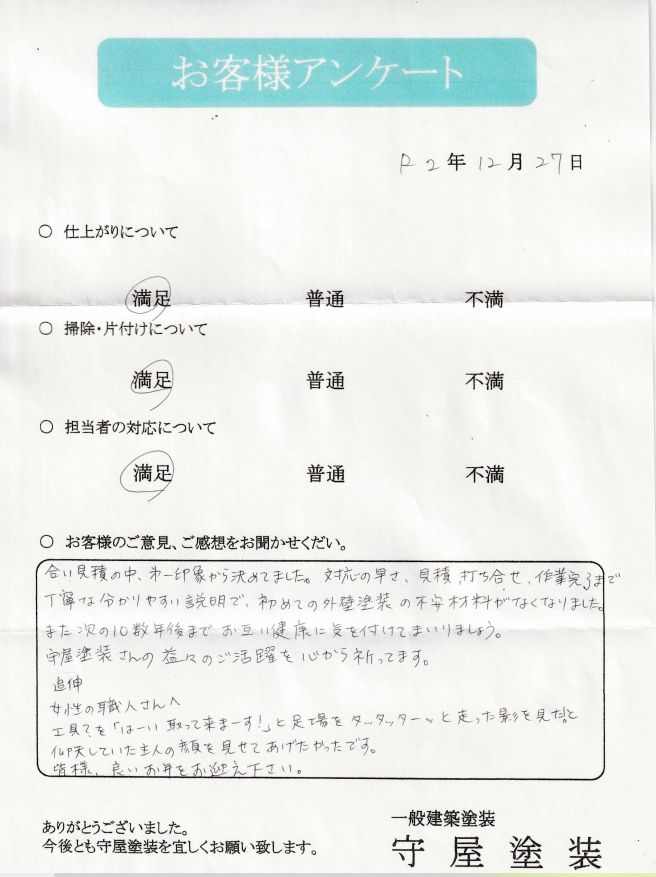 お客様アンケート
R2年12月27日
○ 仕上がりについて
満足 普通 不満
○ 掃除・片付けについて
満足 普通 不満
○ 担当者の対応について
満足 普通 不満
○ お客様のご意見、ご感想をお聞かせくだい。
合い見積の中、第一印象から決めてました。対応の早さ、見積、打ち合せ、作業完了まで
丁寧な分かりやすい説明で、初めての外壁塗装の不安材料がなくなりました。
また次の10数年後までお互い健康に気を付けてまいりましょう。
守屋塗装さんの益々のご活躍を心から祈ってます。
追伸
女性の職人さんへ
工具?を「はーい取って来まーす!」と足場をタッタッターッと走った影を見た?と
仰天していた主人の顔を見せてあげたかったです。
皆様、良いお年をお迎え下さい。
ありがとうございました。
今後とも守屋塗装を宜しくお願い致します。
一般建築塗装
守屋塗装